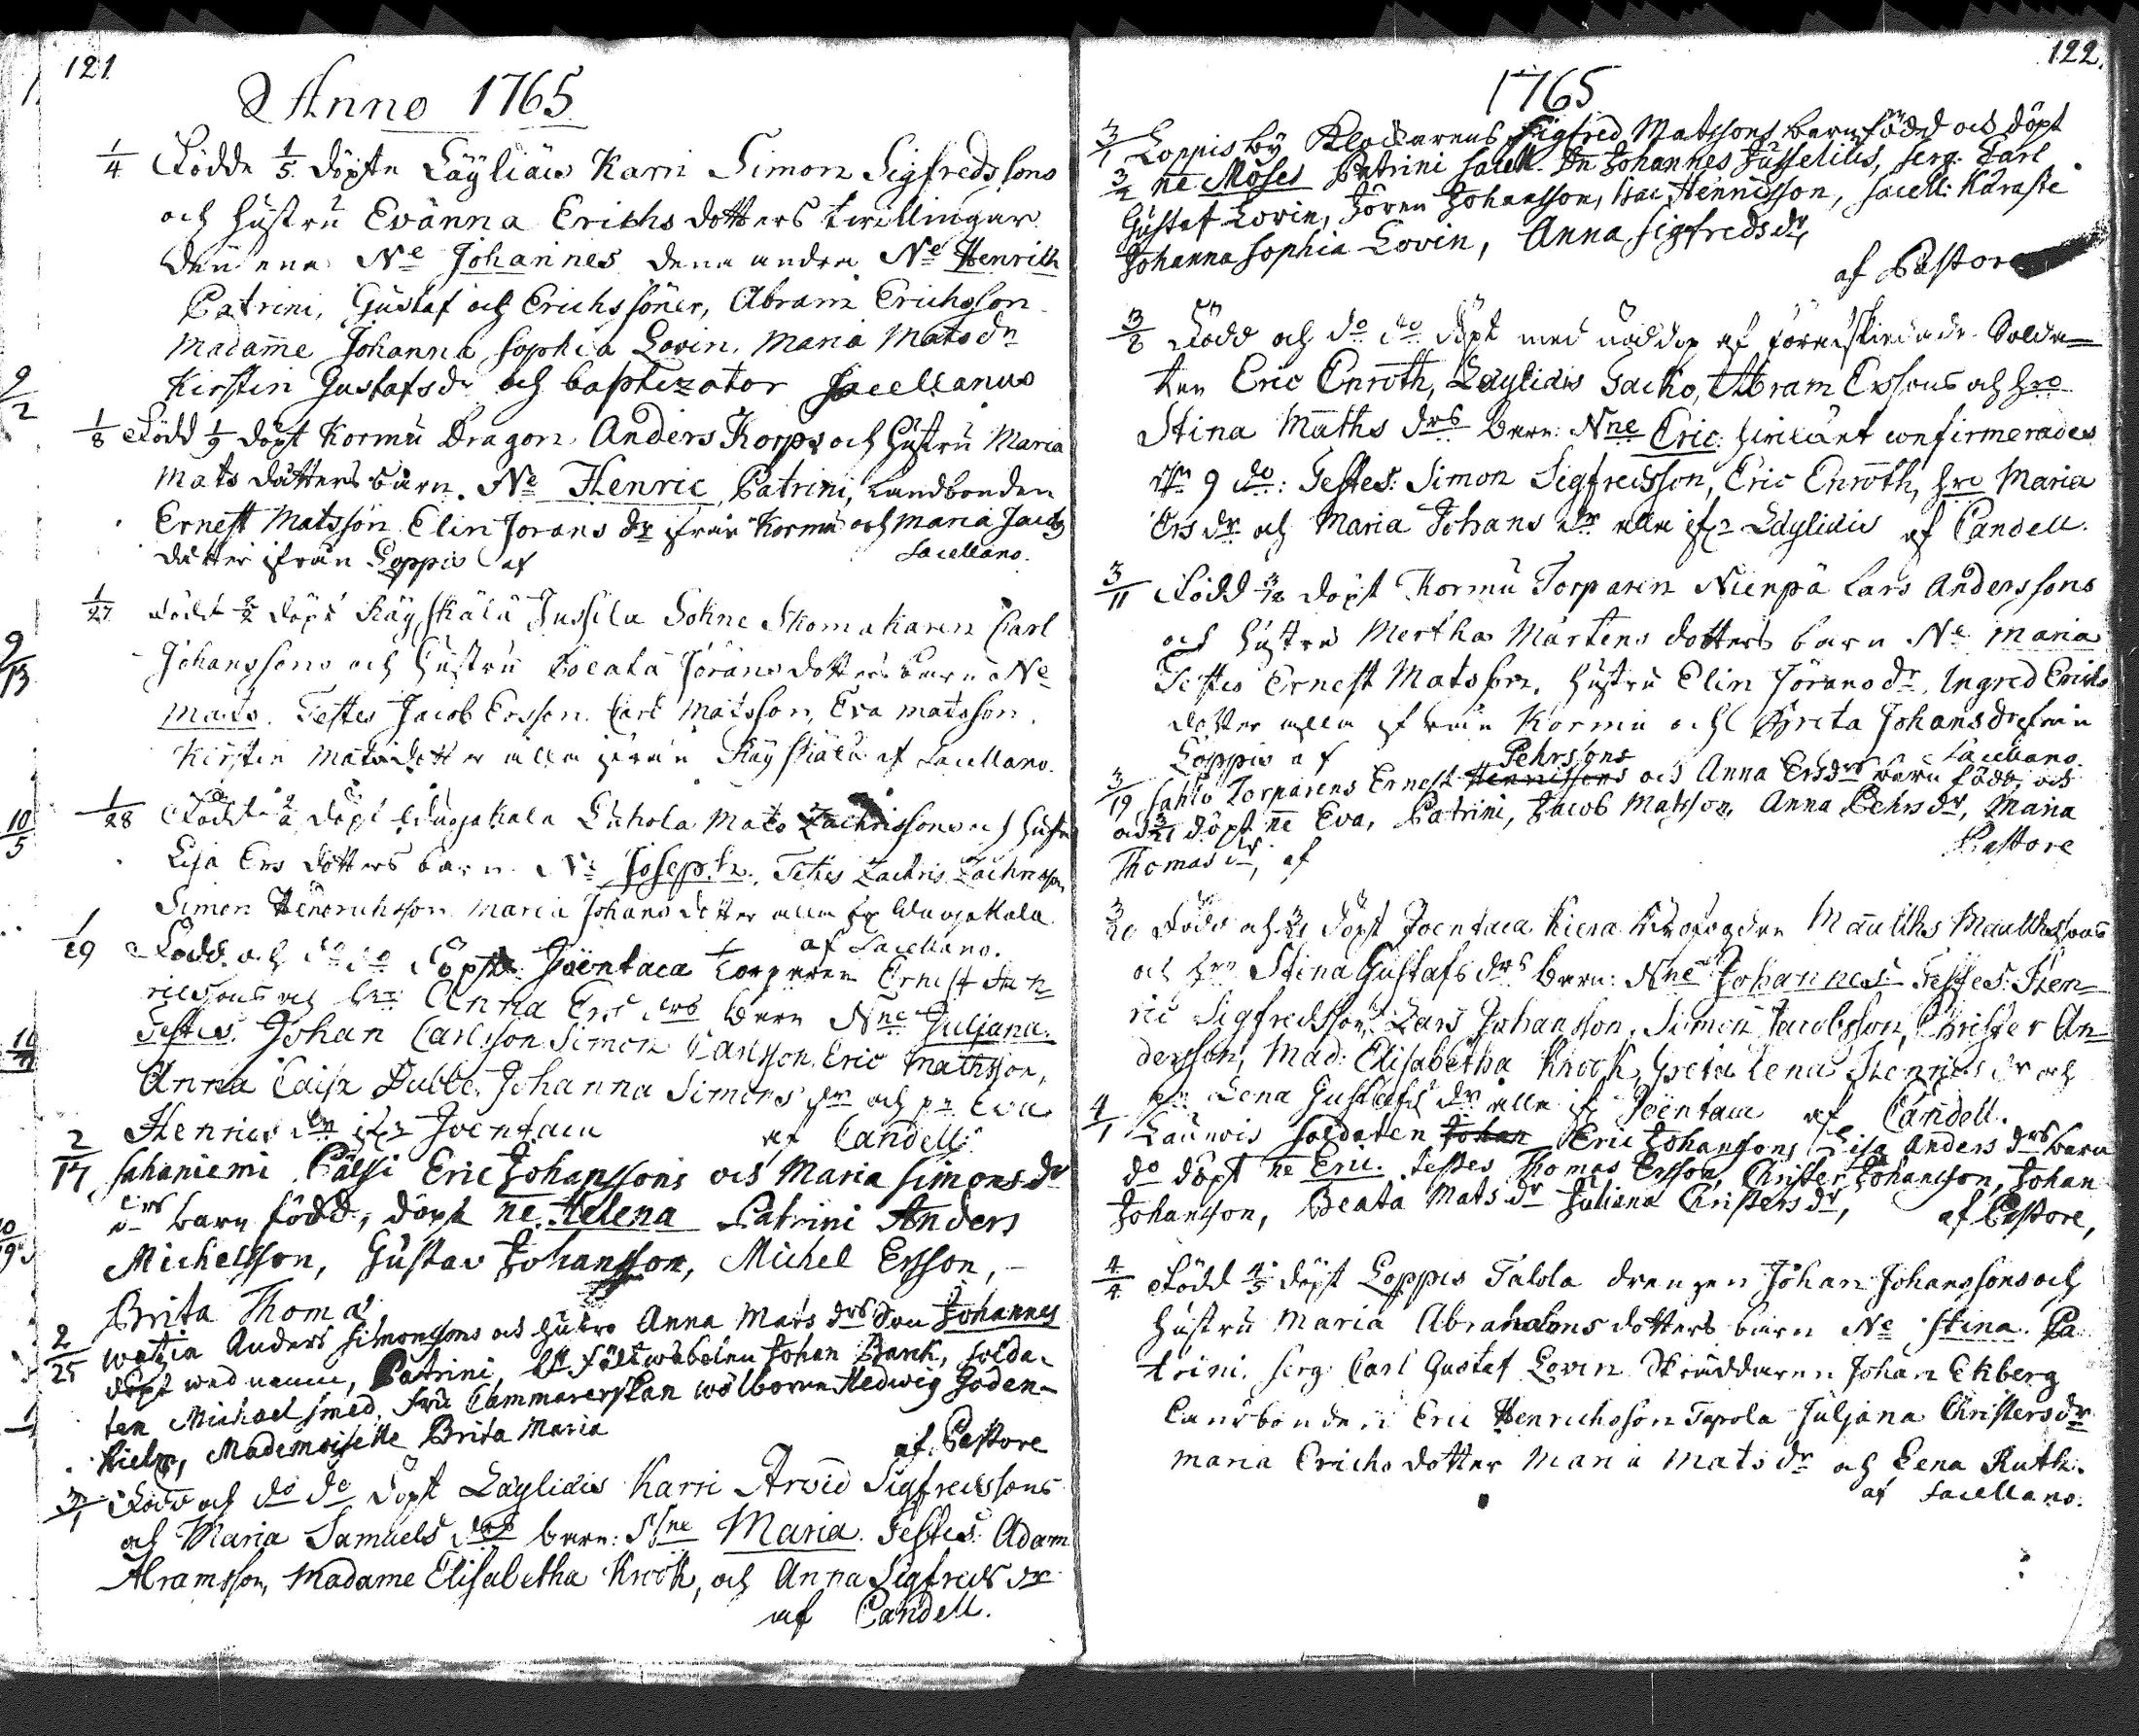 121.
Anno 1765
1/4 Födde 1/5 döpte Läyliäis Karri Simon Sigfredssons
och hustru Evanna Erichs dotters twillingar
den ena Ne Johannes den andra Ne Henrich
Patrini, Gustaf och Erichssöner, Abram Erichsson
Madame Johanna Sophia Lovin, Maria Mats dr
Kirstin Gustafs dr och baptizator Sacellanus
1/8 Född 1/9 döpt Kormu Dragon Anders Korps och hustru Maria
Mats dotters barn. Ne Henric, Patrini, Landbonden
Ernest Matsson Elin Jorans dr ifrån Kormu och Maria Jacobs
dotter ifrån Loppis af Sacellano.
1/27 Född 2/2 döpt Räyskälä Jussila Sohne Skomakaren Carl
Johanssons och hustru Beata Jörans dotters barn Ne
Mats. Testes Jacob Ersson. Carl Matsson, Eva Matsson.
Kirstin Mats dotter alla ifrån Räyskälä af Sacellano.
1/28 Född 2/2 döpt Luhola Mats Zachrissons och hustru
Lisa Ers dotters barn Ne Joseph. Testes Zachris Zachrisson
Simon Henrichsson Maria Johans dotter alla
af Sacellano.
1/29 Född och do do döpt Joentaca Torparen Ernest Hen
ricssons och hru Anna Ers drs barn Nne Juliana.
Testes. Johan Carlsson Simon Carlsson, Eric Mathsson,
Anna Caisa Dubbe, Johanna Simons dr och pn Eva
Henrics dr ifr Joentaca af Candell.
2/17 Sahaniemi Pälsi Eric Johanssons och Maria Simons dr
drs barn född, döpt ne Helena Patrini Anders
Michelsson, Gustav Johansson, Michel Ersson, –
Brita Thomas
2/25 Anders Simonssons och hustro Anna Mats drs son Johannes
döpt wid namn, Patrini, Johan Bank, solda-
ten Michael Smed, Fru Cammarerskan wälborna Hedwig Goden-
hielm, Mademoiselle Brita Maria
af Pastore
3/1 Född och do do döpt Läyliäis Karri Arvid Sigfredssons
och Maria Samuels drs barn: Nne Maria. Testes: Adam
Abramsson, Madame Elisabetha Krook, och Anna Sigfreds dr
af Candell.
122.
1765
3/1 Loppis by Klockarens Sigfred Matssons barn född och döpt
3/2 ne Moses Patrini Sacell. Dn Johannes Jusselius, Serg. Carl
Gustaf Lovin, Jören Johansson, Isac Hennisson, Sacell:
Johanna Sophia Lovin, Anna Sigfreds dr,
af Pastore
3/8 Född och do do döpt med nöddop af förafskiedade Solda=
ten Eric Enroth, Läyliäis Jacko, Abram Erssons och hro
Stina Maths drs barn: Nne Eric. confirmerades
9 do: Testes: Simon Sigfredsson, Eric Enroth, hro Maria
Ers dr och Maria Johans dr alla ifr Läyliäis af Candell.
3/11 Född 3/12 döpt Kormu Torparen Nienpä Lars Anderssons
och hustru Mertha Mårtens dotters barn Ne Maria
Testes Ernest Matsson, hustru Elin Jörans dr, Ingred Erichs
dotter alla ifrån Kormu och Greta Johans dr ifrån
Loppis af Sacellano.
3/19 Sahlo Torparens Ernest Hennissons Pehrssons och Anna Ers drs barn född, och
och 3/21 döpt ne Eva, Patrini, Jacob Matsson, Anna Pehrs dr, Maria
Thomas dr, af Pastore
3/20 Född och 3/21 döpt Joentaca Kiera Maults Maultssons
och hru Stina Gustafs drs barn: Nne Johannes. Testes: Hen=
ric Sigfredsson, Lars Johansson, Simon Jacobsson, Christer An=
dersson, Mad: Elisabetha Krook, Greta Lena Henrics dr och
pn Lena Gustafs dr alla ifr Joentaca af Candell.
4/1 Launois soldaten Johan Eric Johanssons Lisa Anders drs barn
do döpt ne Eric. Testes Thomas Ersson, Christer Johansson, Johan
Johansson, Beata Mats dr Juliana Christers dr, af Pastore,
4/4 Född 4/5 döpt Loppis Talola drengen Johan Johanssons och
hustru Maria Abrahams dotters barn Ne Stina. Pa
trini. Serg: Carl Gustaf Lovin Skräddaren Johan Ekberg
Landbonden Eric Henrichsson Topola Juljana Christers dr
Maria Erichs dotter Maria Mats dr och Lena Ruth.
af Sacellano.